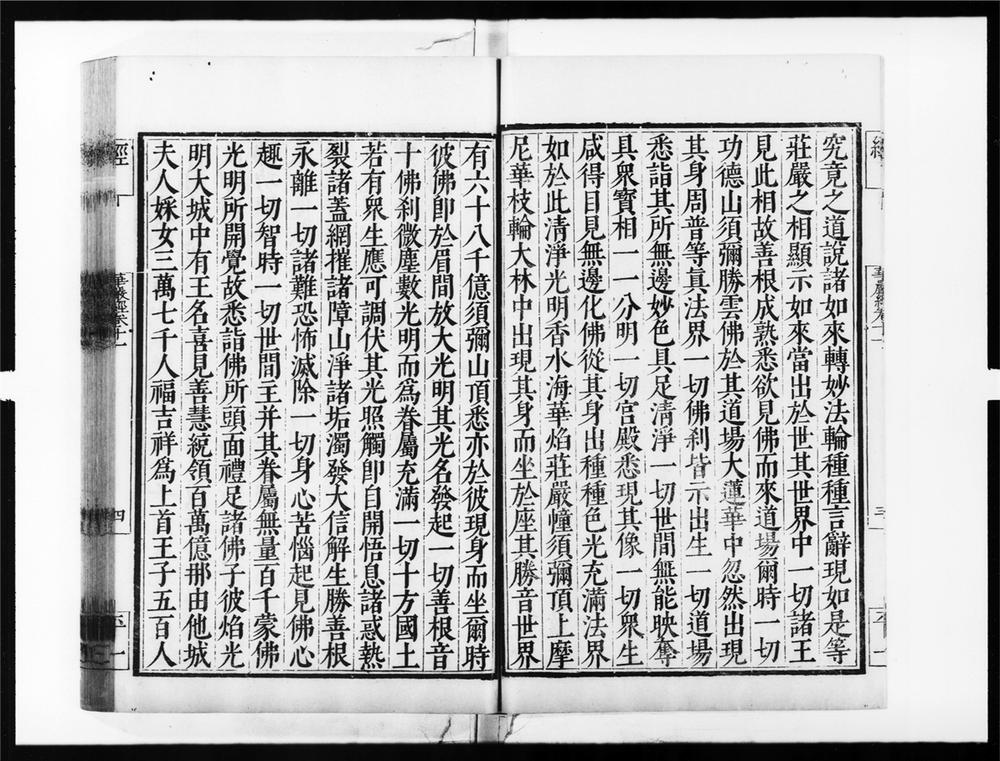 究竟之道說諸如來轉妙法輪種種言辭現如是等
莊嚴之相顯示如來當出於世其世界中一切諸王
見此相故善根成熟悉欲見佛而來道場爾時一切
功德山須彌勝雲佛於其道場大蓮華中忽然出現
其身周普等真法界一切佛刹皆示出生一切道場
悉詣其所無邊妙色具足清淨一切世間無能映奪
具衆寶相一一分明一切宮殿悉現其像一切衆生
咸得目見無邊化佛從其身出種種色光充滿法界
如於此清淨光明香水海華焰莊嚴幢須彌頂上摩
尼華枝輪大林中出現其身而坐於座其勝音世界
有六十八千億須彌山頂悉亦於彼現身而坐爾時
彼佛卽於眉間放大光明其光名發起一切善根音
十佛刹微塵數光明而爲眷屬充滿一切十方國土
若有衆生應可調伏其光照觸卽自開悟息諸惑熱
裂諸蓋網摧諸障山淨諸垢濁發大信解生勝善根
永離一切諸難恐怖滅除一切身心苦惱起見佛心
趣一切智時一切世間主并其眷屬無量百千蒙佛
光明所開覺故悉詣佛所頭面禮足諸佛子彼焰光
明大城中有王名喜見善慧統領百萬億那由他城
夫人婇女三萬七千人福吉祥爲上首王子五百人
經
華嚴經卷十一
四